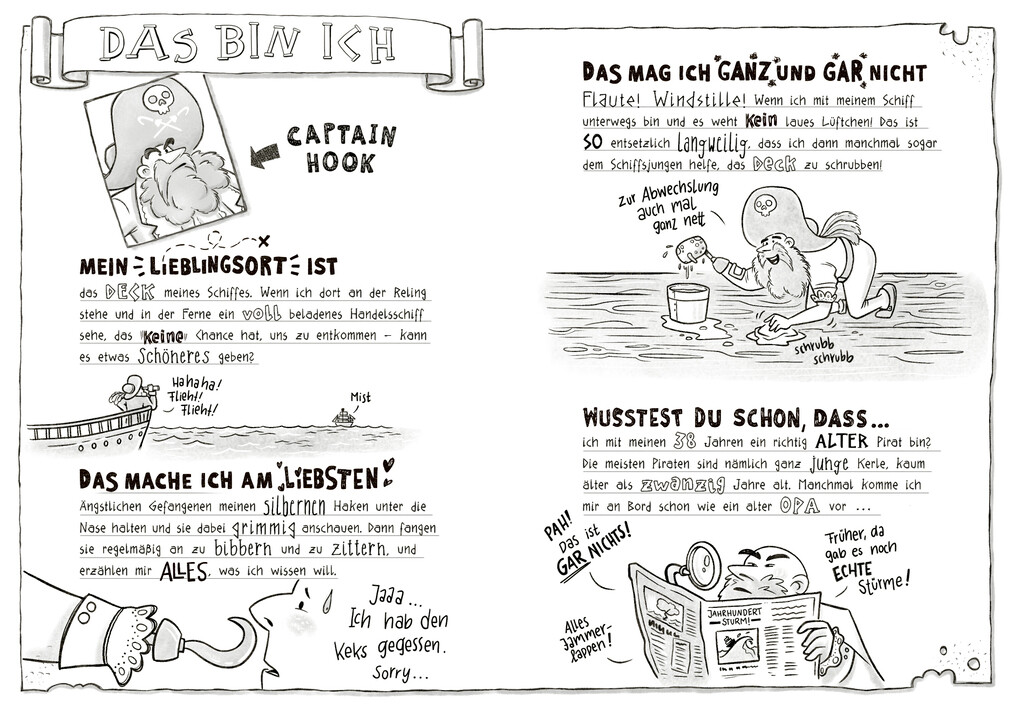 DAS BIN ICH
CAPTAIN
HOOK
MEIN LIEBLINGSORT IST
das DECK meines Schiffes. Wenn ich dort an der Reling
stehe und in der Ferne ein VOLL beladenes Handelsschiff
sehe, das keine Chance hat, uns zu entkommen – kann
es etwas Schöneres geben?
Hahaha!
Flieht!
Flieht!
Mist
DAS MACHE ICH AM LIEBSTEN
Ängstlichen Gefangenen meinen silbernen Haken unter die
Nase halten und sie dabei grimmig anschauen. Dann fangen
sie regelmäßig an zu bibbern und zu zittern, und
erzählen mir ALLES, was ich wissen will.
Jaaa...
Ich hab den
Keks gegessen.
Sorry...
DAS MAG ICH GANZ UND GAR NICHT
Flaute! Windstille! Wenn ich mit meinem Schiff
unterwegs bin und es weht kein laues Lüftchen! Das ist
SO entsetzlich langweilig, dass ich dann manchmal sogar
dem Schiffsjungen helfe, das DECK zu schrubben!
Zur Abwechslung
auch mal
ganz nett
schrubb
schrubb
WUSSTEST DU SCHON, DASS...
ich mit meinen 38 Jahren ein richtig ALTER Pirat bin?
Die meisten Piraten sind nämlich ganz junge Kerle, kaum
älter als zwanzig Jahre alt. Manchmal komme ich
mir an Bord schon wie ein alter OPA vor ...
PAH!
Das ist
GAR NICHTS!
Früher, da
gab es noch
ECHTE
Stürme!
JAHRHUNDERT
STURM!
Alles
Jammer-
lappen!